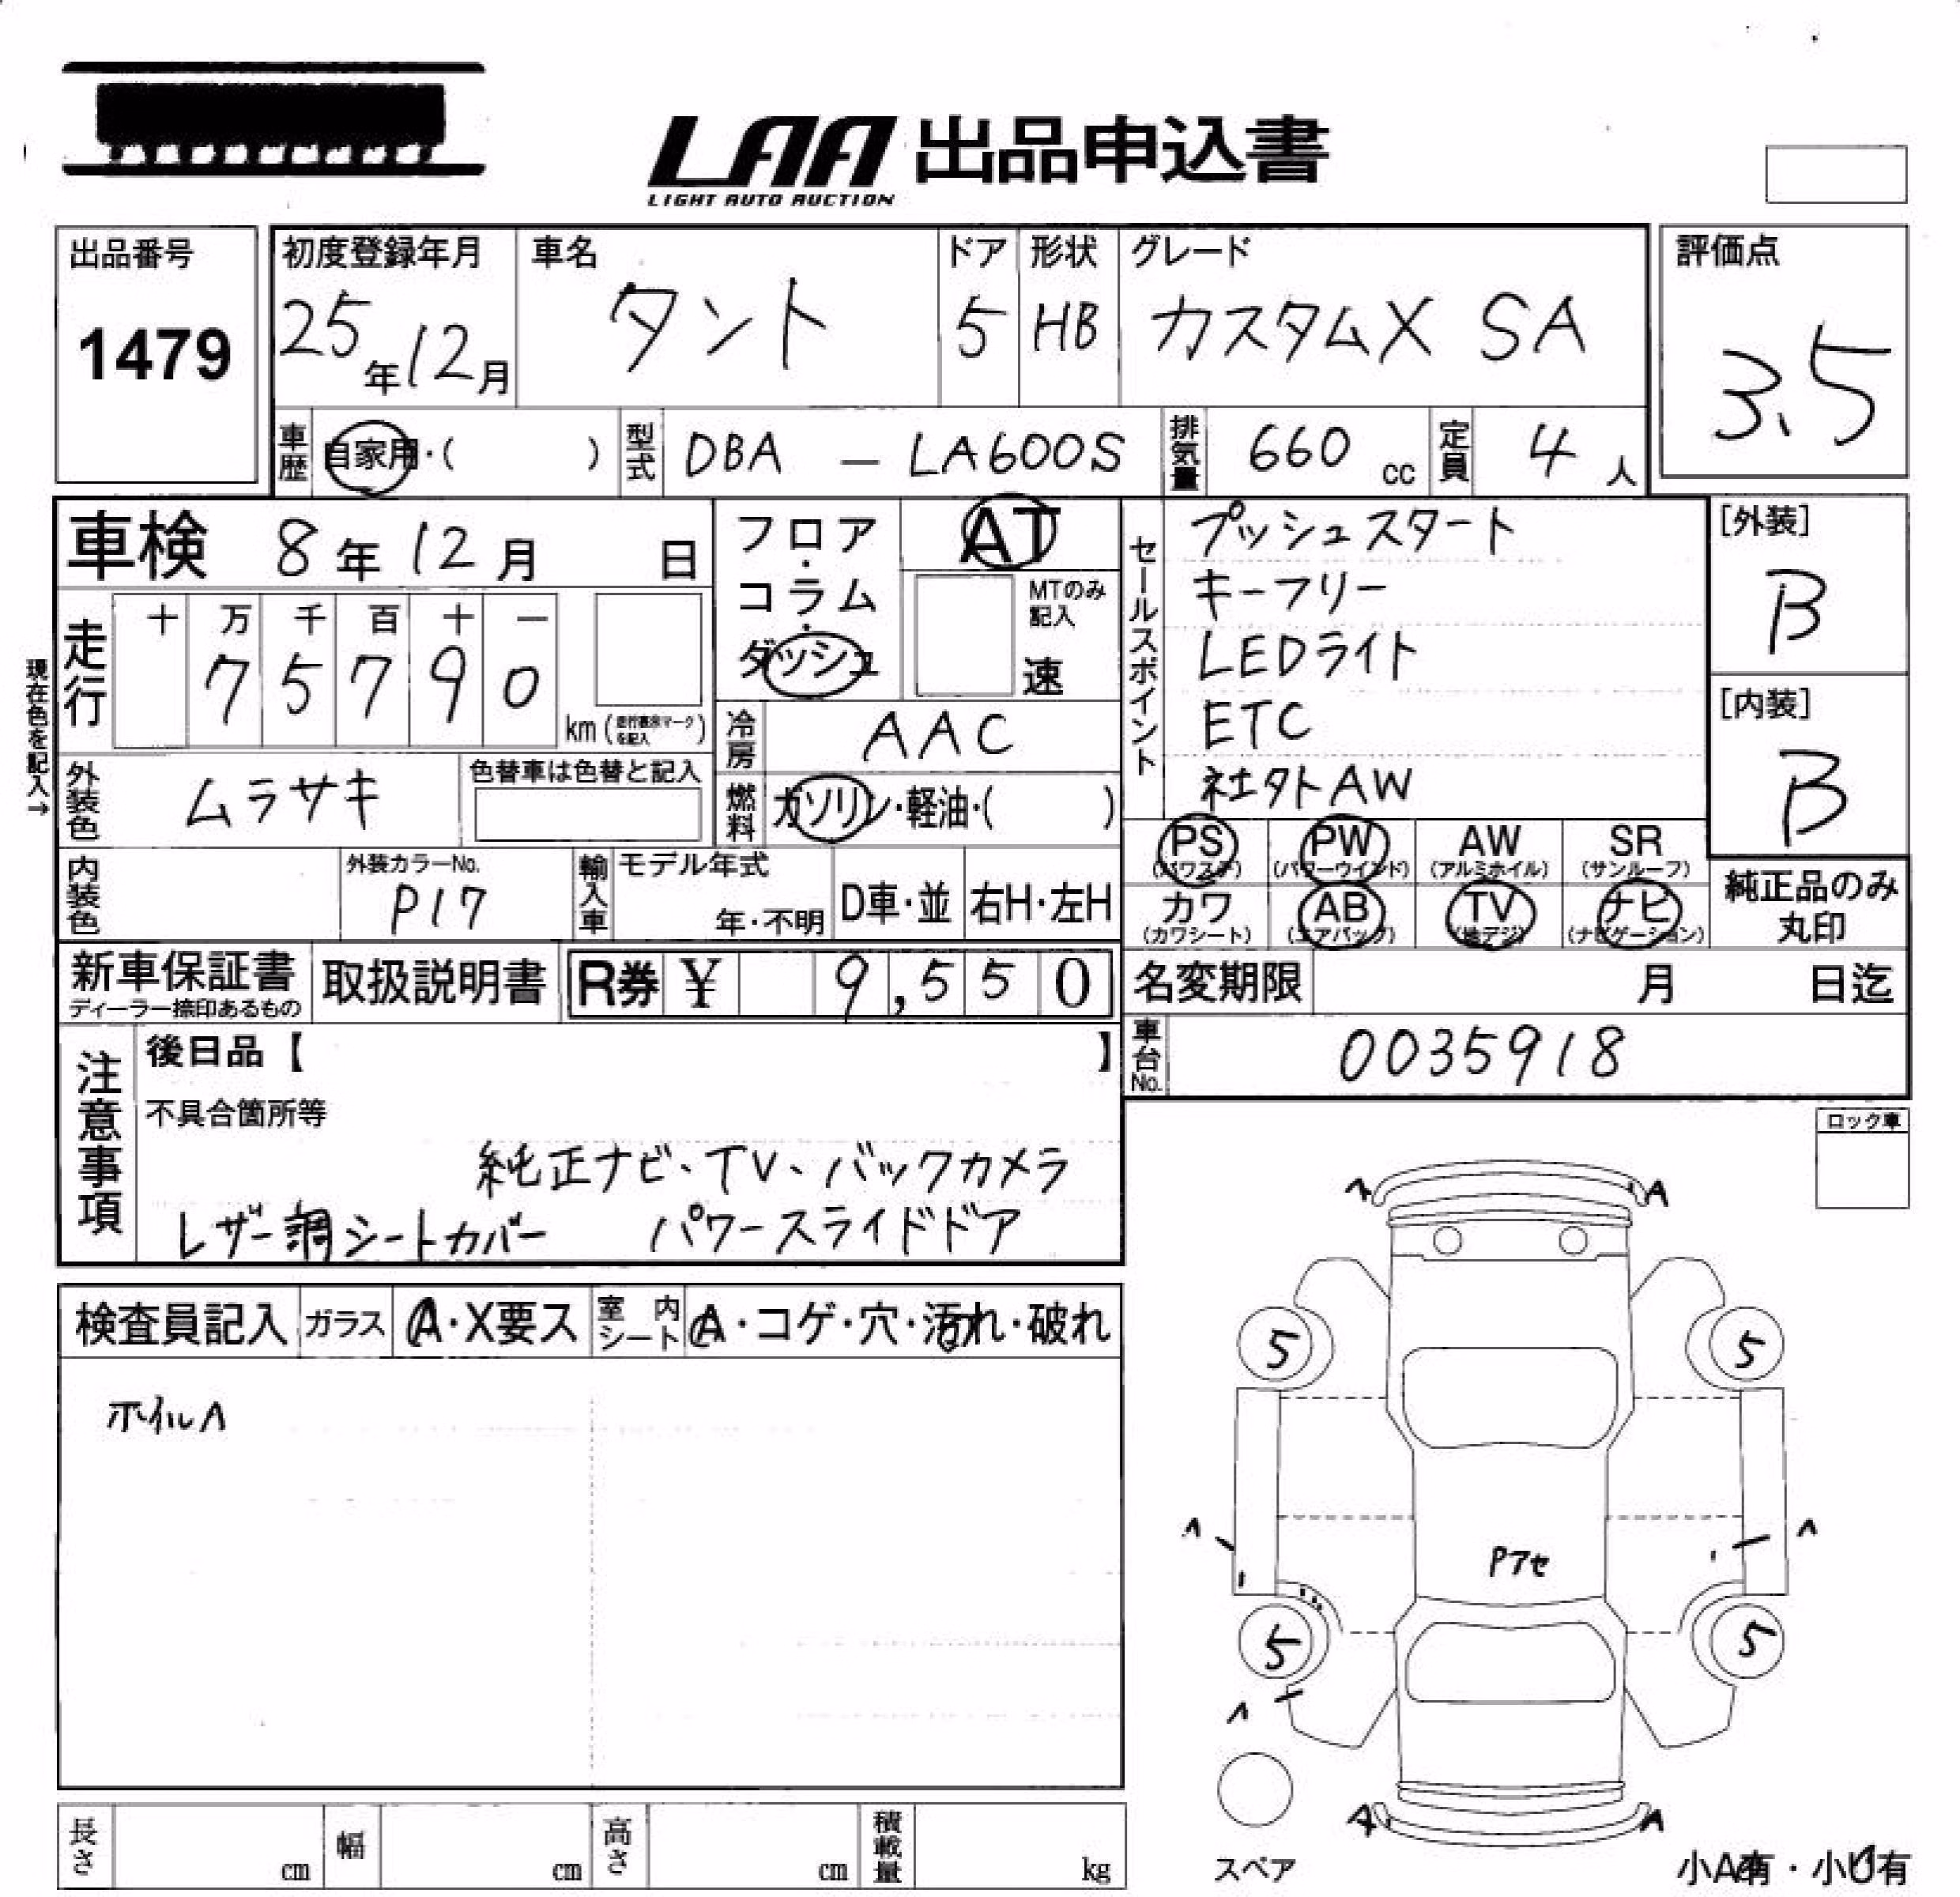 LAA 出品申込書
LIGHT AUTO AUCTION
出品番号
1479
初度登録年月
25年12月
車名
タント
ドア
5
形状
HB
グレード
カスタムX SA
評価点
3.5
車歴
自家用・( )
型式
DBA - LA600S
排気量
660 cc
定員
4 人
車検 8年12月 日
フロア・コラム・ダッシュ
AT
MTのみ記入
速
セールスポイント
プッシュスタート
キーフリー
LEDライト
ETC
社外AW
[外装]
B
[内装]
B
現在色を記入→
走行
十 万 千 百 十 一
7 5 7 9 0
km (走行表示マークを記入)
冷房
AAC
外装色
ムラサキ
色替車は色替と記入
燃料
ガソリン・軽油・( )
PS (パワステ)
PW (パワーウインド)
AW (アルミホイル)
SR (サンルーフ)
カワ (カワシート)
AB (エアバッグ)
TV (地デジ)
ナビ (ナビゲーション)
純正品のみ
丸印
内装色
外装カラーNo.
P17
輸入車
モデル年式
年・不明
D車・並
右H・左H
新車保証書
ディーラー捺印あるもの
取扱説明書
R券 ¥ 9,550
名変期限 月 日迄
車台No.
0035918
注意事項
後日品【 】
不具合箇所等
純正ナビ、TV、バックカメラ
レザー調シートカバー パワースライドドア
ロック車
検査員記入
ガラス
A・X要ス
室内シート
A・コゲ・穴・汚れ・破れ
ホイルA
A A
5 5
A A
Pアセ
5 5
A
A A
スペア
小A有・小U有
長さ cm
幅 cm
高さ cm
積載量 kg